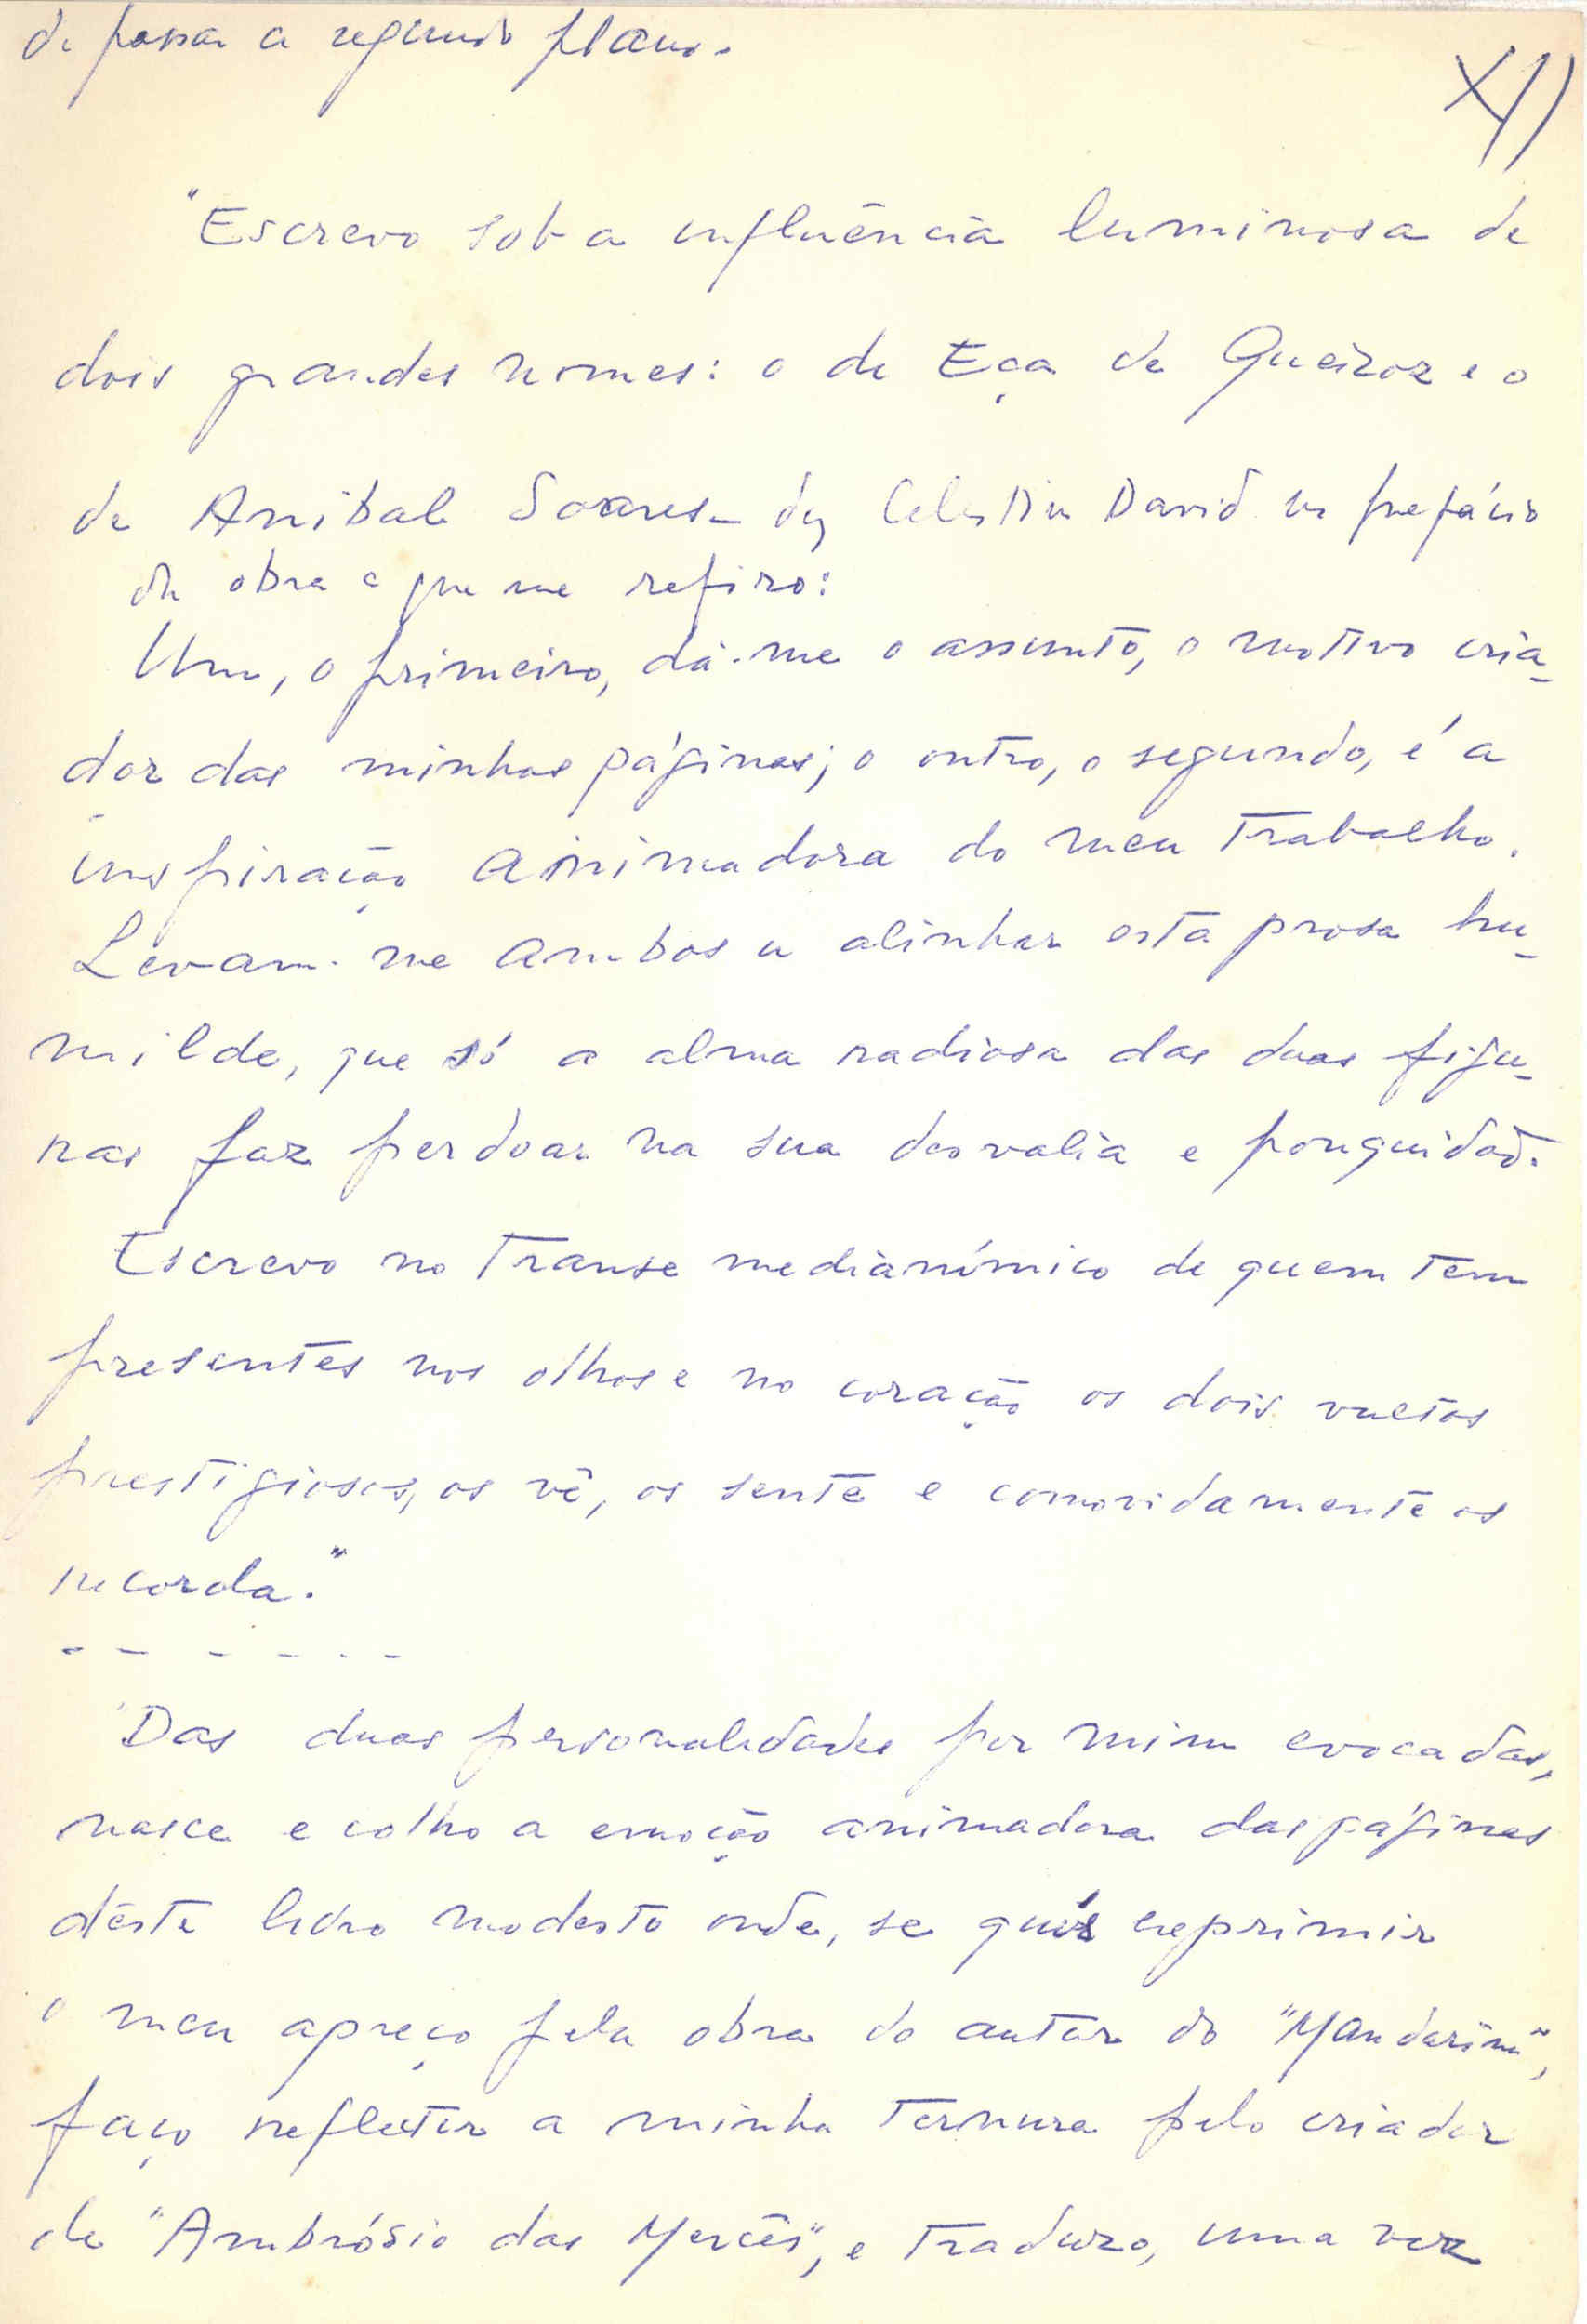 de passar a segundo plano.
XII
"Escrevo sob a influência luminosa de
dois grandes nomes: o de Eça de Queiroz e o
de Anibal Soares - diz Celestino David no prefácio
da obra a que me refiro:
Um, o primeiro, dá-me o assunto, o motivo cria-
dor das minhas páginas; o outro, o segundo, é a
inspiração animadora do meu trabalho.
Levam-me ambos a alinhar esta prosa hu-
milde, que só a alma radiosa das duas figu-
ras faz perdoar na sua desvalia e pouquidade.
Escrevo no transe medianímico de quem tem
presentes nos olhos e no coração os dois vultos
prestigiosos, os vê, os sente e comovidamente os
recorda."
- - - - - -
"Das duas personalidades por mim evocadas,
nasce e colho a emoção animadora das páginas
dêste livro modesto onde, se quis exprimir
o meu apreço pela obra do autor do "Mandarim",
faço reflectir a minha ternura pelo criador
de "Ambrósio das Mercês", e traduzo, uma vez